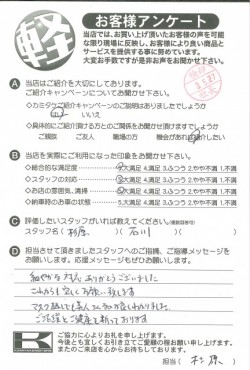 軽
お客様アンケート
当店では、お買い上げ頂いたお客様の声を可能
な限り現場に反映し、お客様により良い商品と
サービスを提供する事に努めています。
大変お手数ですが是非お声をお聞かせ下さい。
A 当店はご紹介を大切にしております。
ご紹介キャンペーンについてお聞かせ下さい。
◇カミタケご紹介キャンペーンのご説明はありましたでしょうか
はい いいえ
◇具体的にご紹介頂ける方とのご関係をお聞かせ頂けますでしょうか
ご親族 ご友人 職場の方 機会があればご紹介したい
B 当店を実際にご利用になった印象をお聞かせ下さい。
◇総合的な満足度 5.大満足 4.満足 3.ふつう 2.やや不満 1.不満
◇スタッフの対応 5.大満足 4.満足 3.ふつう 2.やや不満 1.不満
◇お店の雰囲気、清掃 5.大満足 4.満足 3.ふつう 2.やや不満 1.不満
◇納車時のお車の状態 5.大満足 4.満足 3.ふつう 2.やや不満 1.不満
C 評価したいスタッフがいれば教えてください。
スタッフ名（杉原）（石川）（ ）
D 担当させて頂きましたスタッフへのご指摘、ご指導メッセージを
お願いします。応援メッセージもぜひお願いします。
和やかな対応ありがとうございました
これからも宜しくお願い致します
ご活躍とご健康を祈っております
K
ご協力に心よりお礼を申し上げます。
今後とも宜しくお引き立てご愛顧の程お願い申し上げます。
またのご来店を心からお待ちしております。
担当（杉原）